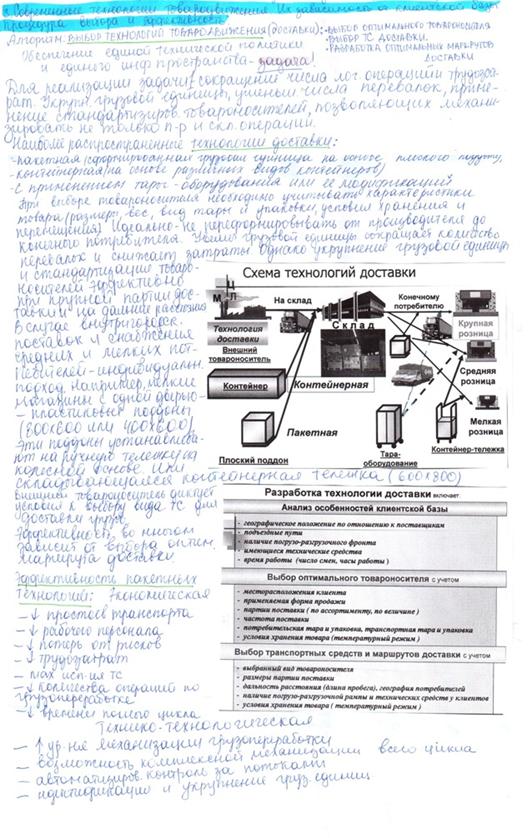 Современные технологии товародвижения. Их зависимость от клиентской базы.
Процедура выбора и эффективность
Алгоритм: ВЫБОР ТЕХНОЛОГИЙ ТОВАРОДВИЖЕНИЯ (доставки):
- ВЫБОР ОПТИМАЛЬНОГО ТОВАРОНОСИТЕЛЯ
- ВЫБОР ТС ДОСТАВКИ.
- РАЗРАБОТКА ОПТИМАЛЬНЫХ МАРШРУТОВ ДОСТАВКИ
Обеспечение единой технической политики
и единого инф. пространства - задача!
Для реализации задачи: сокращение числа лог. операций и трудоза-
трат. Укрупн. грузовой единицы, уменьш. числа перевалок, приме-
нение стандартизиров. товароносителей, позволяющих механи-
зировать не только п-р и скл. операции.
Наиболее распространенные технологии доставки:
- пакетная (сформированная грузовая единица на основе плоского поддона,
- контейнерная (на основе различных видов контейнеров)
- с применением тары-оборудования или ее модификаций
При выборе товароносителя необходимо учитывать характеристики
товара (размеры, вес, вид тары и упаковки, условия хранения и
перемещения) Идеально - не переформировывать от производителя до
конечного потребителя. грузовой единицы сокращает количество
перевалок и снижает затраты. Однако укрупнение грузовой единицы
и стандартизация товаро-
носителей эффективно
при крупной партии дос-
тавки и на дальние расстояния
В случае внутригородск.
поставок и снабжения
средних и мелких пот-
ребителей - индивидуальн.
подход. Например, мелкие
магазины с одной дверью -
- пластиковые поддоны
(800х600 или 400х600)
Эти поддоны устанавлива-
ют на ручную тележку на
колесной основе. Или
складывающаяся контейнерная тележка (600х800)
Внешний товароноситель диктует
условия к выбору вида ТС для
доставки груза.
Эффективность во многом
зависит от выбора оптим.
маршрута доставки.
Эффективность пакетных
технологий: Экономическая
- ↓ простоев транспорта
- ↓ рабочего персонала
- ↓ потерь от рисков
- ↓ трудозатрат
- max исп-ия ТС
- ↓ количества операций по
грузопереработке
- ↓ времени полного цикла
Технико-технологическая
- ↑ ур-ня механизации грузопереработки
- возможность комплексной механизации всего цикла
- автоматизиров. контроль за потоками
- идентификацию и укрупнение груз. единиц
Схема технологий доставки
На склад
Конечному
потребителю
Склад
Технология
доставки
Внешний
товароноситель
Крупная
розница
Контейнер
Контейнерная
Средняя
розница
Пакетная
Мелкая
розница
Плоский поддон
Тара-
оборудование
Контейнер-тележка
Разработка технологии доставки включает
Анализ особенностей клиентской базы
- географическое положение по отношению к поставщикам
- подъездные пути
- наличие погрузо-разгрузочного фронта
- имеющиеся технические средства
- время работы (число смен, часы работы)
Выбор оптимального товароносителя с учетом
- месторасположения клиента
- применяемая форма продажи
- партии поставки (по ассортименту, по величине)
- частота поставки
- потребительская тара и упаковка, транспортная тара и упаковка
- условия хранения товара (температурный режим)
Выбор транспортных средств и маршрутов доставки с учетом
- выбранный вид товароносителя
- размеры партии поставки
- дальность расстояния (длина пробега), география потребителей
- наличие погрузо-разгрузочной рампы и технических средств у клиентов
- условия хранения товара (температурный режим)